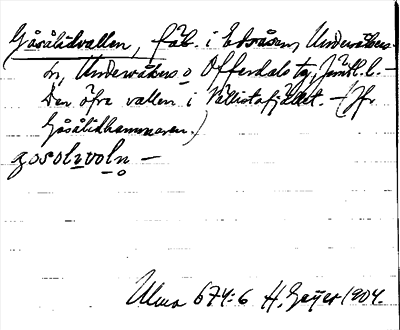 Gåsålidvallen, fäb. i Edsåsen, Undersåkers
sn, Undersåkers o Offerdals tg, Jämtl. l. —
Den öfre vallen i Vällistafjället. — (Jfr
Gåsålidhammaren.)
gosolıvoln —
Ulma 674:6 H. Geijer 1904.